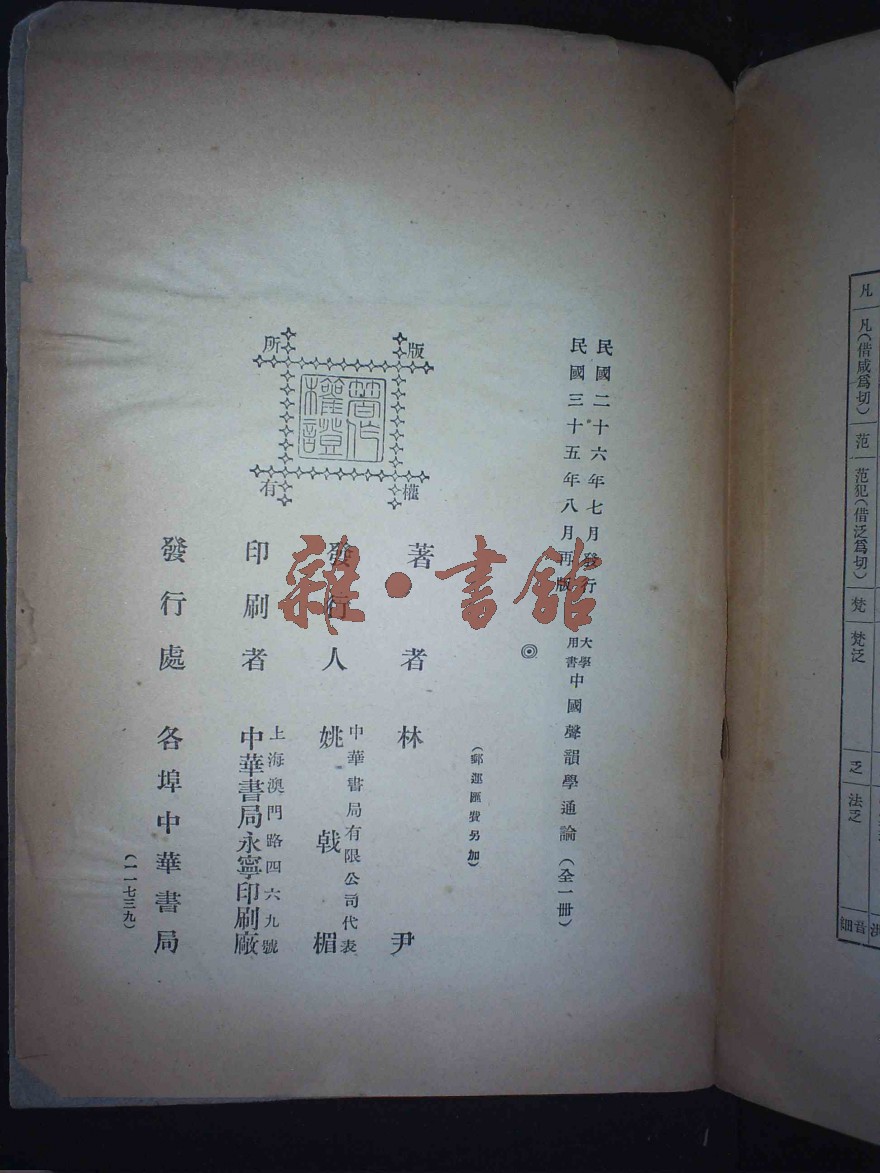 民國二十六年七月發行
民國三十五年八月再版
大學用書 中國聲韻學通論（全一册）
◎
（郵運匯費另加）
版權所有
著作權證
著者 林尹
發行人 姚戟楣
中華書局有限公司代表
印刷者 中華書局永寧印刷廠
上海澳門路四六九號
發行處 各埠中華書局
（一一七三九）
雜·書館
凡
凡（借咸爲切）
范
范犯（借泛爲切）
梵
梵泛
乏
法乏
細音
洪